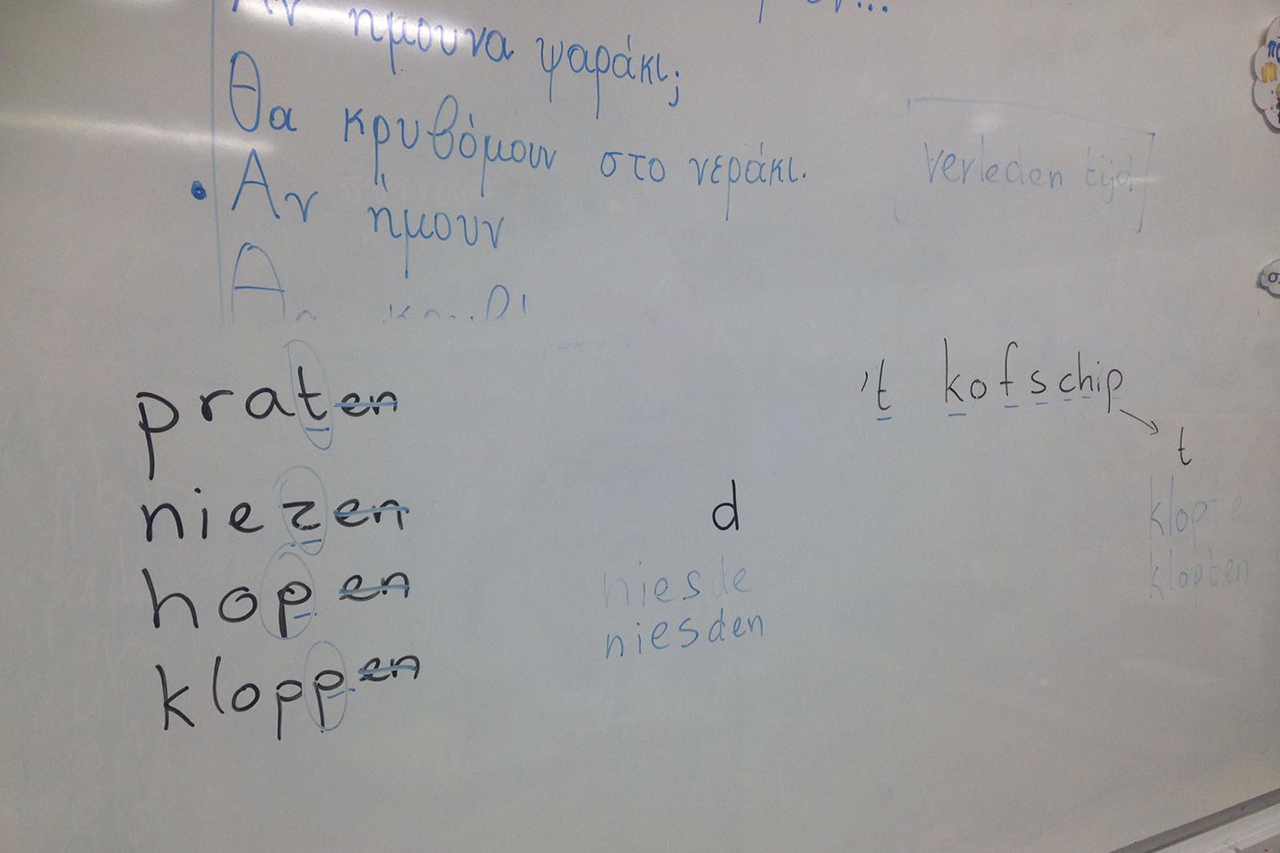 Αν ήμουνα ψαράκι;
Θα κρυβόμουν στο νεράκι.
• Αν ήμουν
verleden tijd
praten
niezen
hopen
kloppen
't kofschip
t
klopte
klopten
d
niesde
niesden